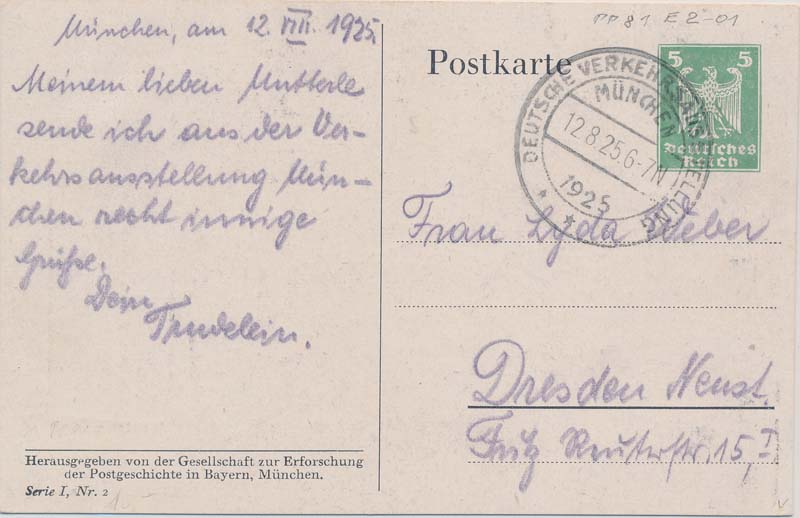 PP 81 E 2-01
München, am 12. VIII. 1925.
Meinem lieben Mutterle
sende ich aus der Ver-
kehrsausstellung Mün-
chen recht innige
Grüße.
Dein
Trudelein.
Herausgegeben von der Gesellschaft zur Erforschung
der Postgeschichte in Bayern, München.
Serie I, Nr. 2
Postkarte
5 5
Deutsches
Reich
DEUTSCHE VERKEHRSAUSSTELLUNG
MÜNCHEN
12.8.25.6-7N.
1925
Frau Lyda Weber
Dresden Neust.
Fritz Reuterstr. 15, I